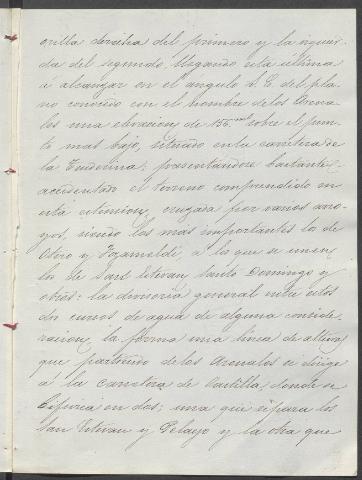 orilla derecha del primero y la izquier-
da del segundo llegando esta última
á alcanzar en el angulo S. E. del pla-
no conocido con el nombre de los Arena-
les una elevacion de 156 sobre el pun-
to mas bajo, situado en la carretera de
la Tenderina; presentándose bastante
accidentado el terreno comprendido en
esta estension, cruzada por varios arro-
yos, siendo los mas importantes los de
Otero y a los que se unen
los de San Estevan, Santo Domingo y
otros: la divisoria general entre estos
dos cursos de agua de alguna conside-
racion, la forma una linea de altura
que partiendo de los Arenales se dirige
á la carretera de Castilla, donde se
bifurca en dos; una que separa los
San Estevan y Pelayo y la otra que